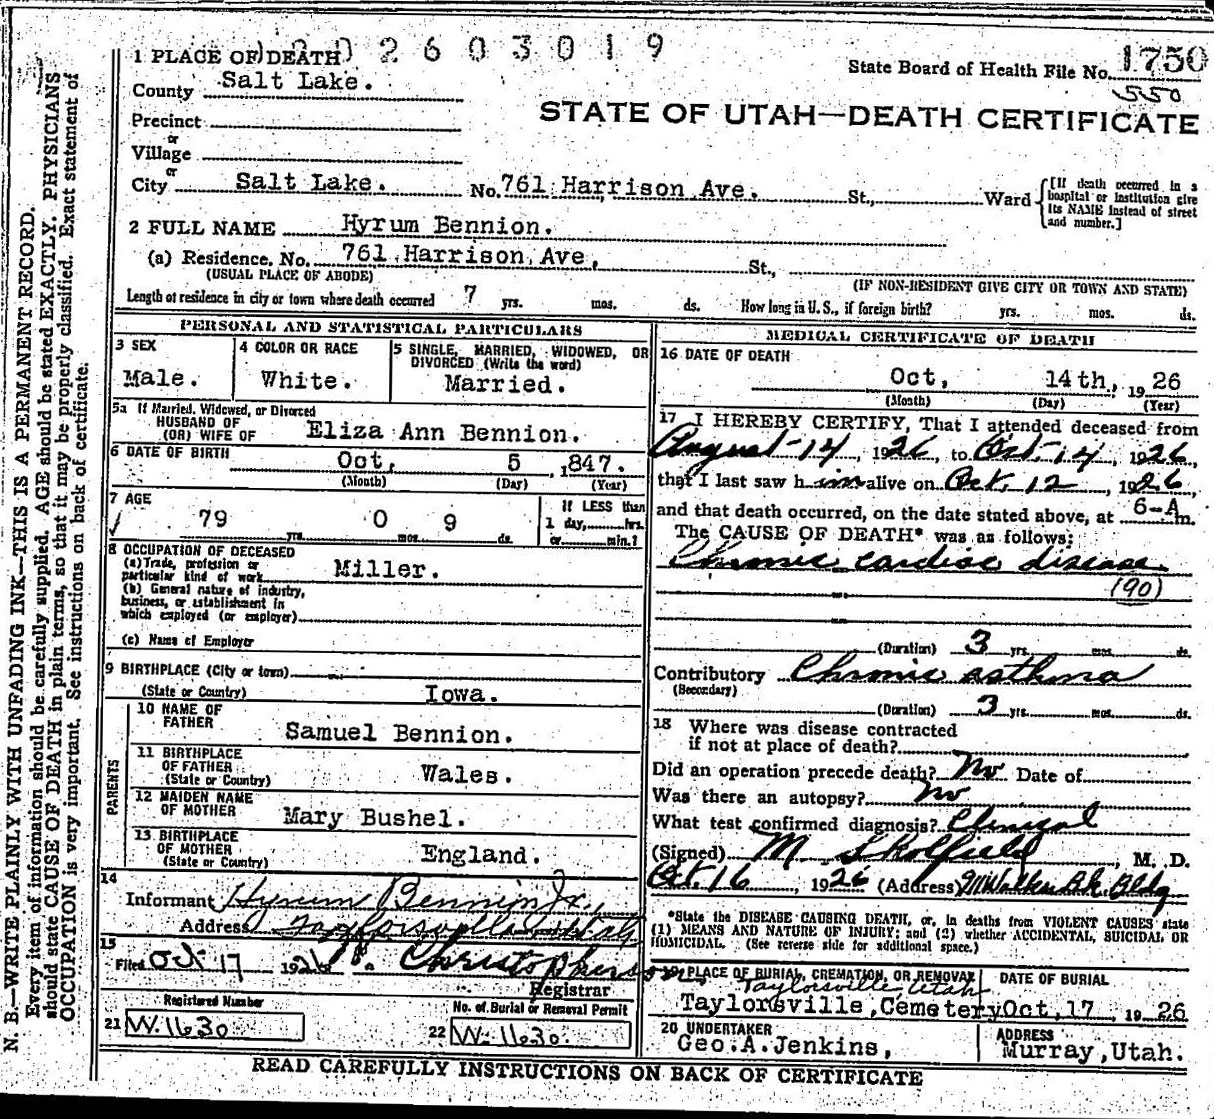 N. B.—WRITE PLAINLY WITH UNFADING INK—THIS IS A PERMANENT RECORD.
Every item of information should be carefully supplied. AGE should be stated EXACTLY. PHYSICIANS
should state CAUSE OF DEATH in plain terms, so that it may be properly classified. Exact statement of
OCCUPATION is very important. See instructions on back of certificate.
2603019
1 PLACE OF DEATH
State Board of Health File No. 1750
550
County Salt Lake.
STATE OF UTAH—DEATH CERTIFICATE
Precinct
or
Village
or
City Salt Lake. No. 761 Harrison Ave. St., Ward
[If death occurred in a
hospital or institution give
its NAME instead of street
and number.]
2 FULL NAME Hyrum Bennion.
(a) Residence, No. 761 Harrison Ave, St.,
(USUAL PLACE OF ABODE) (IF NON-RESIDENT GIVE CITY OR TOWN AND STATE)
Length of residence in city or town where death occurred 7 yrs. mos. ds. How long in U. S., if foreign birth? yrs. mos. ds.
PERSONAL AND STATISTICAL PARTICULARS
3 SEX
Male.
4 COLOR OR RACE
White.
5 SINGLE, MARRIED, WIDOWED, OR
DIVORCED (Write the word)
Married.
5a If Married, Widowed, or Divorced
HUSBAND OF
(OR) WIFE OF Eliza Ann Bennion.
6 DATE OF BIRTH Oct, 5 ,847.
(Month) (Day) (Year)
7 AGE
79 yrs. 0 mos. 9 ds.
If LESS than
1 day, hrs.
or min.?
8 OCCUPATION OF DECEASED
(a) Trade, profession or
particular kind of work Miller.
(b) General nature of industry,
business, or establishment in
which employed (or employer)
(c) Name of Employer
9 BIRTHPLACE (City or town)
(State or Country) Iowa.
PARENTS
10 NAME OF
FATHER Samuel Bennion.
11 BIRTHPLACE
OF FATHER
(State or Country) Wales.
12 MAIDEN NAME
OF MOTHER Mary Bushel.
13 BIRTHPLACE
OF MOTHER
(State or Country) England.
14
Informant Hyrum Bennion Jr.,
Address Taylorsville Utah
15
Filed Oct 17 1926 Christopherson
Registrar
Registered Number
21 W. 1630
No. of Burial or Removal Permit
22 W. 1630.
MEDICAL CERTIFICATE OF DEATH
16 DATE OF DEATH
Oct, 14th, 1926
(Month) (Day) (Year)
17 I HEREBY CERTIFY, That I attended deceased from
August-14, 1926, to Oct. 14, 1926,
that I last saw h im alive on Oct. 12, 1926,
and that death occurred, on the date stated above, at 6-A m.
The CAUSE OF DEATH* was as follows:
Chronic cardiac disease
(90)
(Duration) 3 yrs. mos. ds.
Contributory Chronic asthma
(Secondary)
(Duration) 3 yrs. mos. ds.
18 Where was disease contracted
if not at place of death?
Did an operation precede death? No Date of
Was there an autopsy? No
What test confirmed diagnosis? Clinical
(Signed) M Skolfield, M. D.
Oct. 16, 1926 (Address) 911 Walker Bk. Bldg
*State the DISEASE CAUSING DEATH, or, in deaths from VIOLENT CAUSES state
(1) MEANS AND NATURE OF INJURY; and (2) whether ACCIDENTAL, SUICIDAL OR
HOMICIDAL. (See reverse side for additional space.)
PLACE OF BURIAL, CREMATION, OR REMOVAL
Taylorsville Utah
Taylorsville, Cemetery
DATE OF BURIAL
Oct, 17, 1926
20 UNDERTAKER
Geo. A. Jenkins,
ADDRESS
Murray, Utah.
READ CAREFULLY INSTRUCTIONS ON BACK OF CERTIFICATE